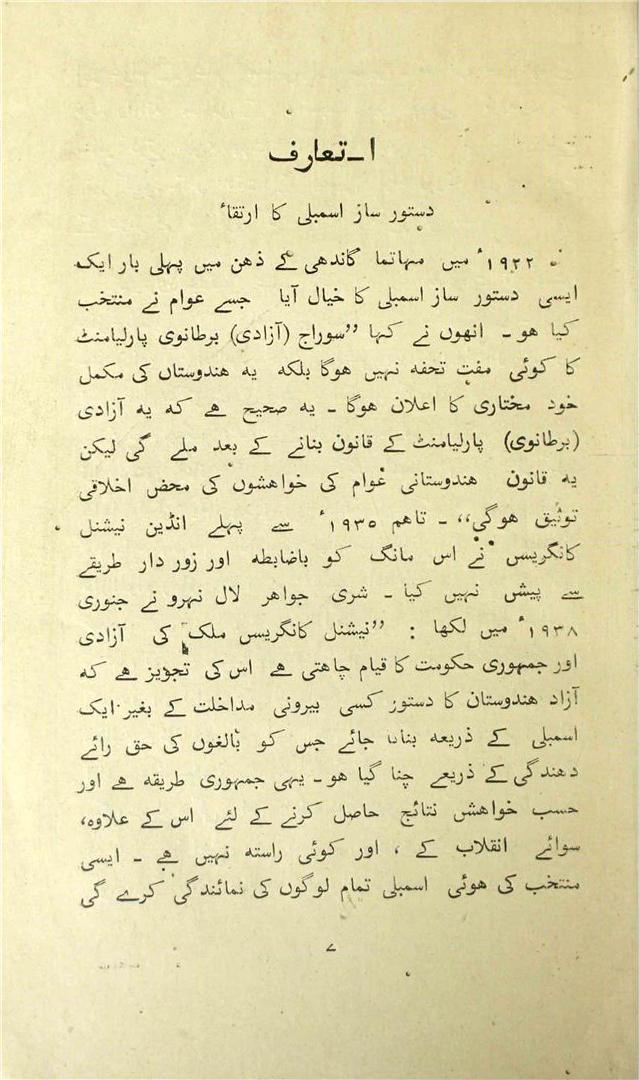 ۱ - تعارف
دستور ساز اسمبلی کا ارتقاء
۱۹۲۲ء میں مہاتما گاندھی کے ذهن میں پہلی بار ایک
ایسی دستور ساز اسمبلی کا خیال آیا جسے عوام نے منتخب
کیا هو - انھوں نے کہا ”سوراج (آزادی) برطانوی پارلیامنٹ
کا کوئی مفت تحفه نہیں هوگا بلکه یه هندوستان کی مکمل
خود مختاری کا اعلان هوگا - یه صحیح هے که یه آزادی
(برطانوی) پارلیامنٹ کے قانون بنانے کے بعد ملے گی لیکن
یه قانون هندوستانی عوام کی خواهشوں کی محض اخلاقی
توثیق هوگی،، - تاهم ۱۹۳۵ء سے پہلے انڈین نیشنل
کانگریس نے اس مانگ کو باضابطه اور زور دار طریقے
سے پیش نہیں کیا - شری جواهر لال نہرو نے جنوری
۱۹۳۸ء میں لکھا : ”نیشنل کانگریس ملک کی آزادی
اور جمہوری حکومت کا قیام چاهتی هے اس کی تجویز هے که
آزاد هندوستان کا دستور کسی بیرونی مداخلت کے بغیر ایک
اسمبلی کے ذریعه بنایا جائے جس کو بالغوں کی حق رائے
دهندگی کے ذریعے چنا گیا هو - یہی جمہوری طریقه هے اور
حسب خواهش نتائج حاصل کرنے کے لئے اس کے علاوه،
سوائے انقلاب کے ، اور کوئی راسته نہیں هے - ایسی
منتخب کی هوئی اسمبلی تمام لوگوں کی نمائندگی کرے گی
۷